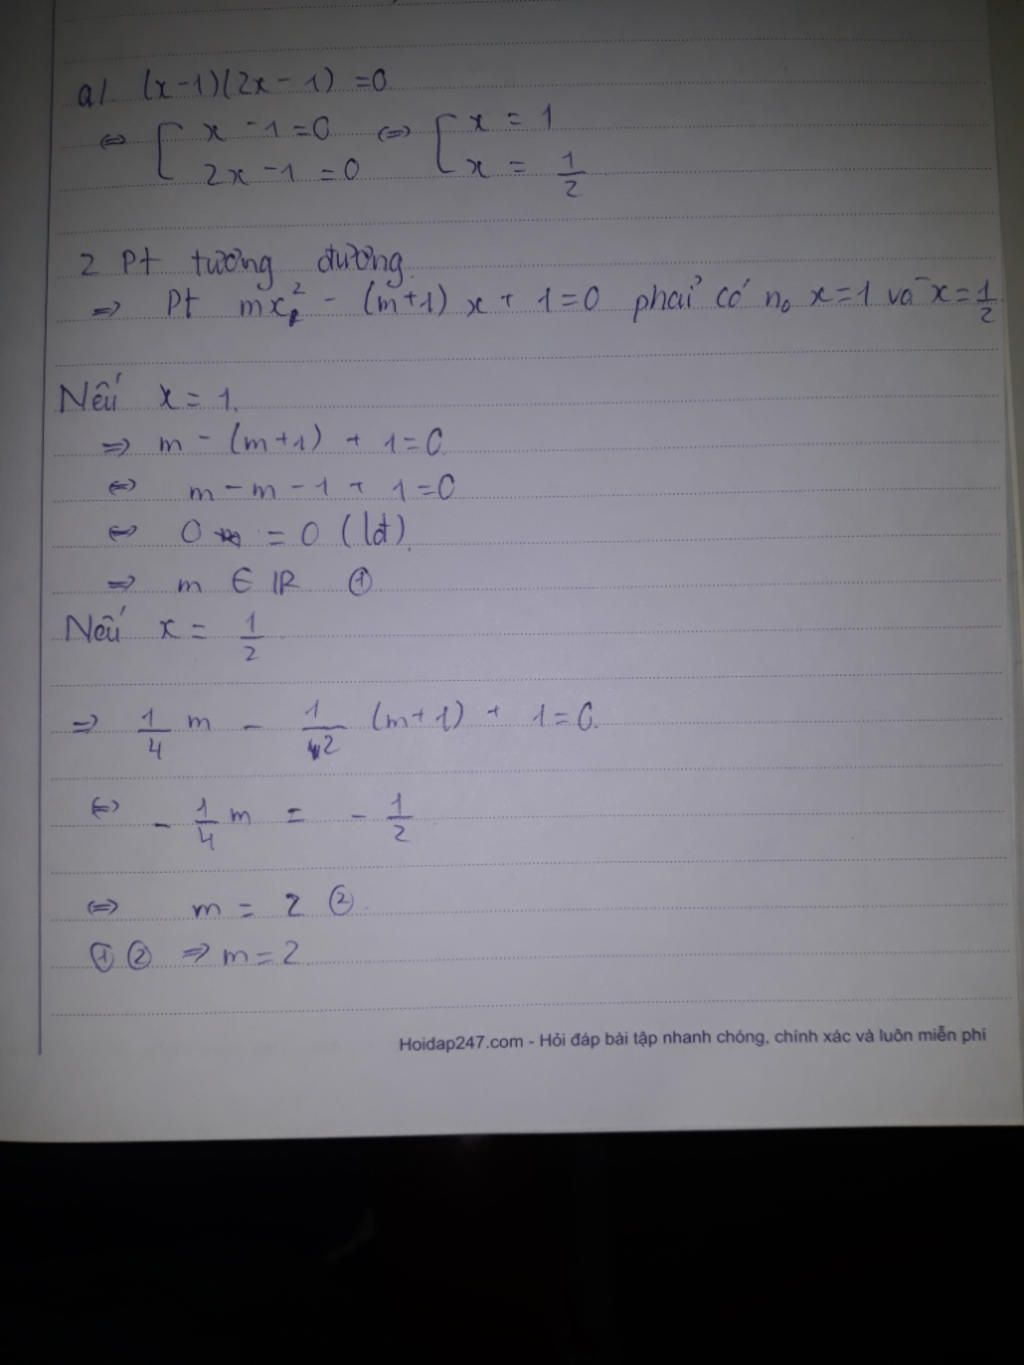 a/ (x-1)(2x-1) =0
⇔ [ x-1=0 ⇔ [ x = 1
2x-1=0 x = 1/2
2 Pt tương đương
=> Pt mx² - (m+1) x + 1=0 phải có no x=1 và x=1/2
Nếu x = 1.
=> m - (m+1) + 1=0
⇔ m-m-1 + 1=0
⇔ 0 = 0 (lđ).
=> m ∈ IR ①
Nếu x = 1/2
=> 1/4 m - 1/2 (m+1) + 1=0.
⇔ - 1/4 m = - 1/2
⇔ m = 2 ②
① ② => m=2.
Hoidap247.com - Hỏi đáp bài tập nhanh chóng, chính xác và luôn miễn phí